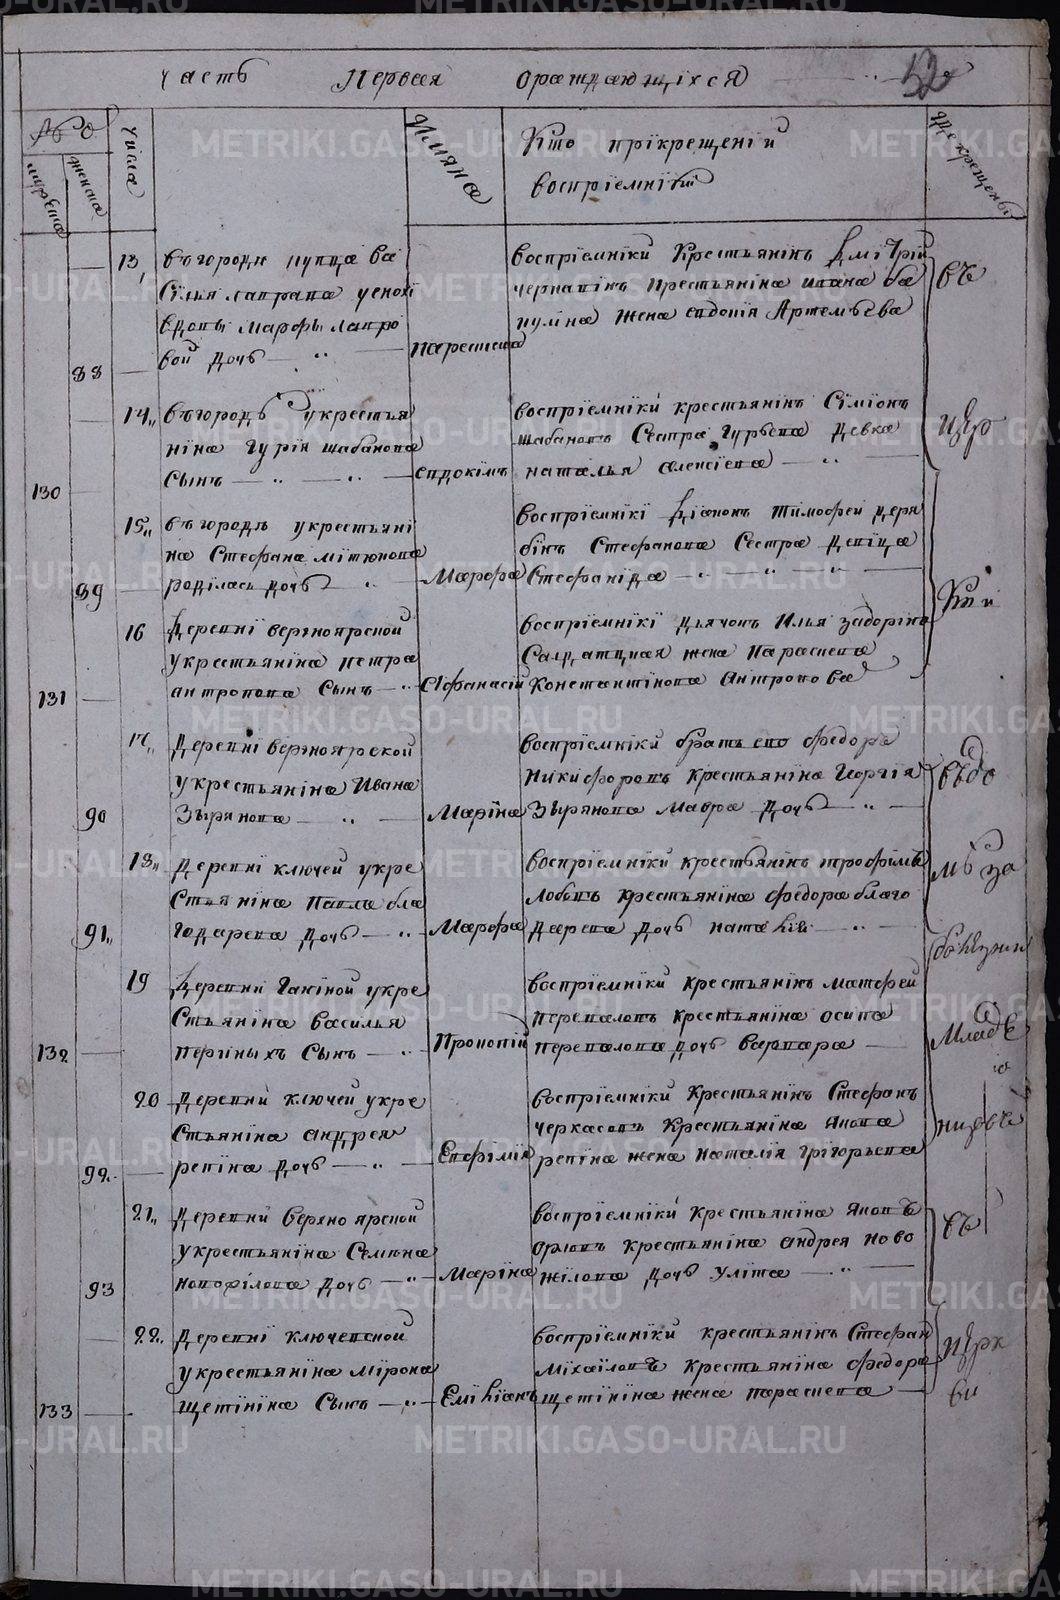 Часть Первая ораждающихся 52
№
мужеска
женска
числа
Имяна
Кто прикрещеніи
воспріемніки
где крещены
88 13, въгородѣ купца ва
сілья лапрапа
вдовы Марфы
вой дочь Параскева
воспріемніки Крестьянінъ Дмітрій
крестьяніна ивана ба
куліна жена евдокія Артемьева
въ
130 14,, въгородѣ укрестья
ніна Гурія шабанова
сынъ Евдокімъ
воспріемніки крестьянінъ Сіміонъ
шабановъ Сестра Гурьева девка
наталья алексіева
цер
89 15,, въгородѣ укрестьяні
на Стефана мітюкова
роділась дочь Марфа
воспріемнікі Діаконъ Тимофей деря
бінъ Стефанова Сестра девіца
Стефаніда
кви
131 16 Деревні верхноярской
укрестьяніна петра
антропова Сынъ Афанасій
воспріемнікі дьячокъ Илья задорінъ
Салдатцкая жена Параскева
Константінова Антропова
90 17,, Деревні верхноярской
укрестьяніна Ивана
Зырянова Маріна
воспріемніки братъ ево федоръ
Никифоровъ крестьяніна Георгія
Зырянова мавра дочь
въдо
91,, 18,, Деревні ключей укре
стьяніна Павла бла
годарева дочь Марфа
воспріемніки крестьянінъ трофімъ
лобовъ крестьяніна федора благо
дарева дочь наталія
мѣ за
болезнии
132 19 Деревни Ганіной укре
стьяніна василья
першныхъ Сынъ Прокопій
воспріемніки крестьянінъ матфей
переваловъ крестьяніна осипа
перевалова дочь варвара
младѣ
92.. 20 Деревни ключей укре
стьяніна андрея
репіна дочь Евфімія
воспріемніки Крестьянінъ Стефанъ
черкасовъ Крестьяніна Якова
репіна жена Наталія Грігорьева
93 21,, Деревни верхно ярской
укрестьяніна Семіона
новожілова дочь Маріна
воспріемніки Крестьяніна Яковъ
орловъ крестьяніна андрея ново
жілова дочь уліта
въ
133 22.. Деревні ключевской
укрестьяніна міроно
щетініна Сынъ Еміліанъ
воспріемніки крестьянінъ Стефан
Міхайловъ крестьяніна федора
щетініна жена параскева
церк
ви
METRIKI.GASO-URAL.RU